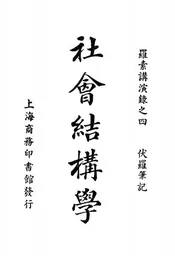 羅素講演錄之四 伏羅筆記
社會結構學
上海商務印書館發行